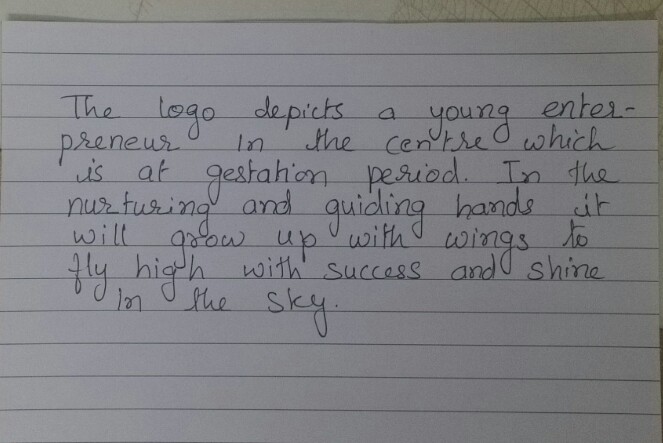 The logo depicts a young enter-
preneur in the centre which
is at gestation period. In the
nurturing and guiding hands it
will grow up with wings to
fly high with success and shine
in the sky.